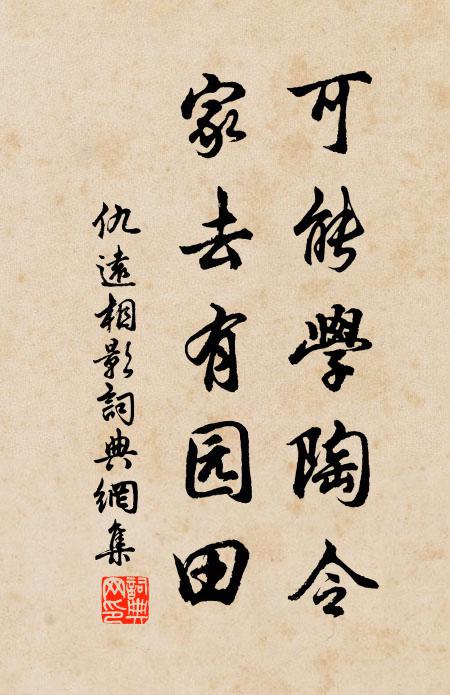 可能學陶令
家去有园田
仇遠相影詞典網集
詞典网印